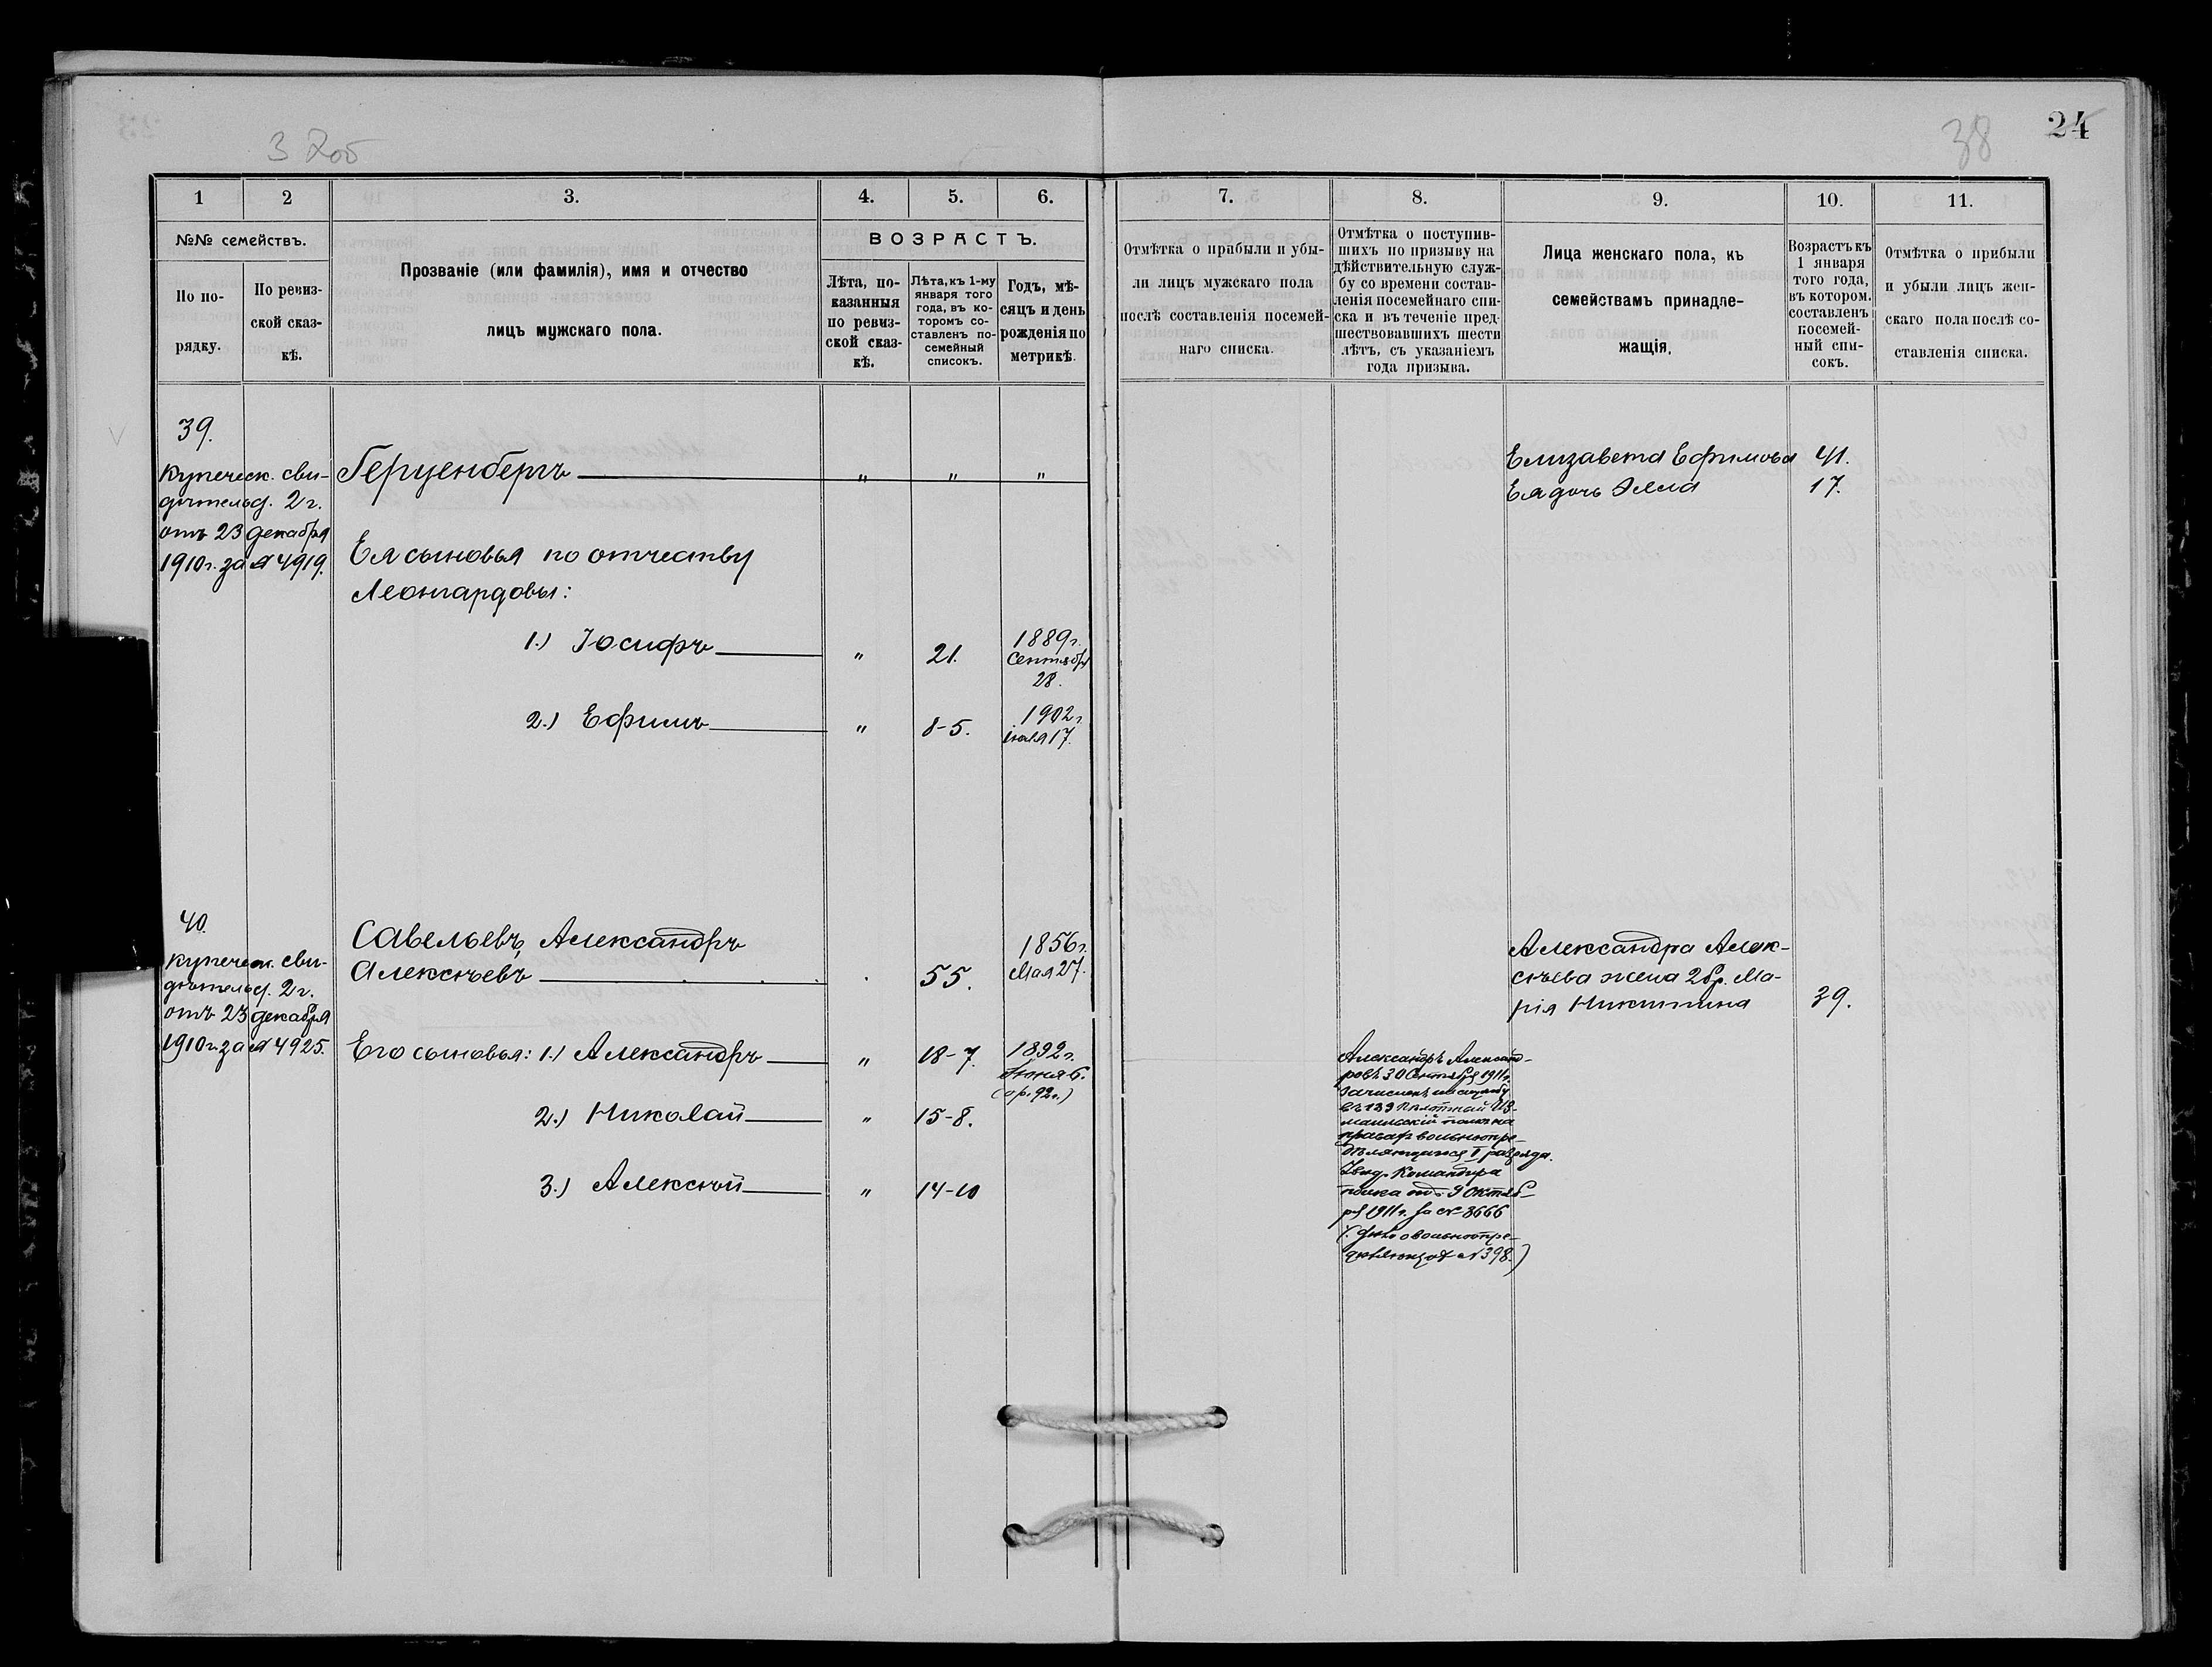 38
24
1
2
3.
4.
5.
6.
7.
8.
9.
10.
11.
№№ семействъ.
По по-
рядку.
По ревиз-
ской сказ-
кѣ.
Прозваніе (или фамилія), имя и отчество
лицъ мужскаго пола.
ВОЗРАСТЪ.
Лѣта, по-
казанныя
по ревиз-
ской сказ-
кѣ.
Лѣта, къ 1-му
января того
года, въ ко-
торомъ со-
ставленъ по-
семейный
списокъ.
Годъ, мѣ-
сяцъ и день
рожденія по
метрикѣ.
Отмѣтка о прибыли и убы-
ли лицъ мужскаго пола
послѣ составленія посемей-
наго списка.
Отмѣтка о поступив-
шихъ по призыву на
дѣйствительную служ-
бу со времени состав-
ленія посемейнаго спи-
ска и въ теченіе пред-
шествовавшихъ шести
лѣтъ, съ указаніемъ
года призыва.
Лица женскаго пола, къ
семействамъ принадле-
жащія.
Возрастъ къ
1 января
того года,
въ котором.
составленъ
посемей-
ный спи-
сокъ.
Отмѣтка о прибыли
и убыли лицъ жен-
скаго пола послѣ со-
ставленія списка.
39.
Купеческ. сви-
дѣтельс. 2 г.
отъ 23 декабря
1910 г. за № 4919.
Герценбергъ „ „ „
Ея сыновья по отчеству
Леонгардовы:
1.) Іосифъ „ 21. 1889 г.
Сентября
28.
2.) Ефимъ „ 8-5. 1902 г.
іюля 17.
Елизавета Ефимова 41.
Ея дочь Элла 17.
40.
Купеческ. сви-
дѣтельс. 2 г.
отъ 23 декабря
1910 г. за № 4925.
Савельевъ, Александръ
Алексѣевъ 55. 1856 г.
Мая 27.
Его сыновья: 1.) Александръ „ 18-7. 1892 г.
Іюня 6.
2.) Николай „ 15-8.
3.) Алексѣй „ 14-10
Александръ Александ-
ровъ 30 Сентября 1911 г.
зачисленъ на службу
въ 189 пѣхотный Из-
маильскій полкъ на
правахъ вольноопре-
дѣляющагося I разряда.
Увѣд. Командира
полка отъ 9 Октяб-
ря 1911 г. за № 3666
(дѣло о вольноопре-
дѣляющ. № 398.)
Александра Алек-
сѣева жена 2 бр. Ма-
рія Никитина 39.